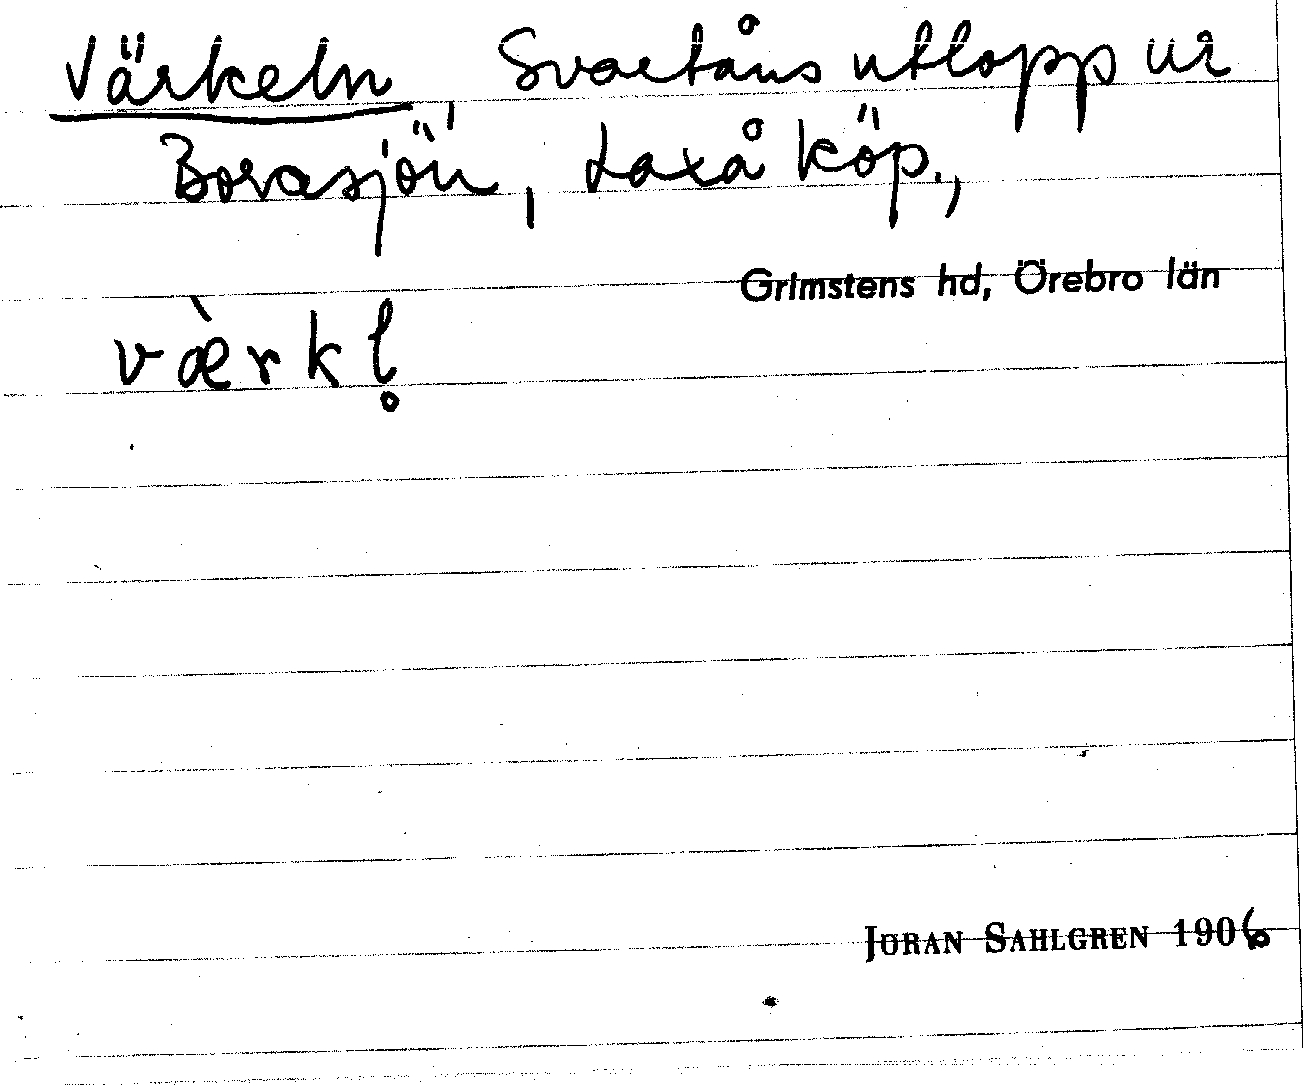 Värkeln, Svartåns utlopp ur
Borasjön, Laxå köp.,
Grimstens hd, Örebro län
væ̀rkl̥
JÖRAN SAHLGREN 1906